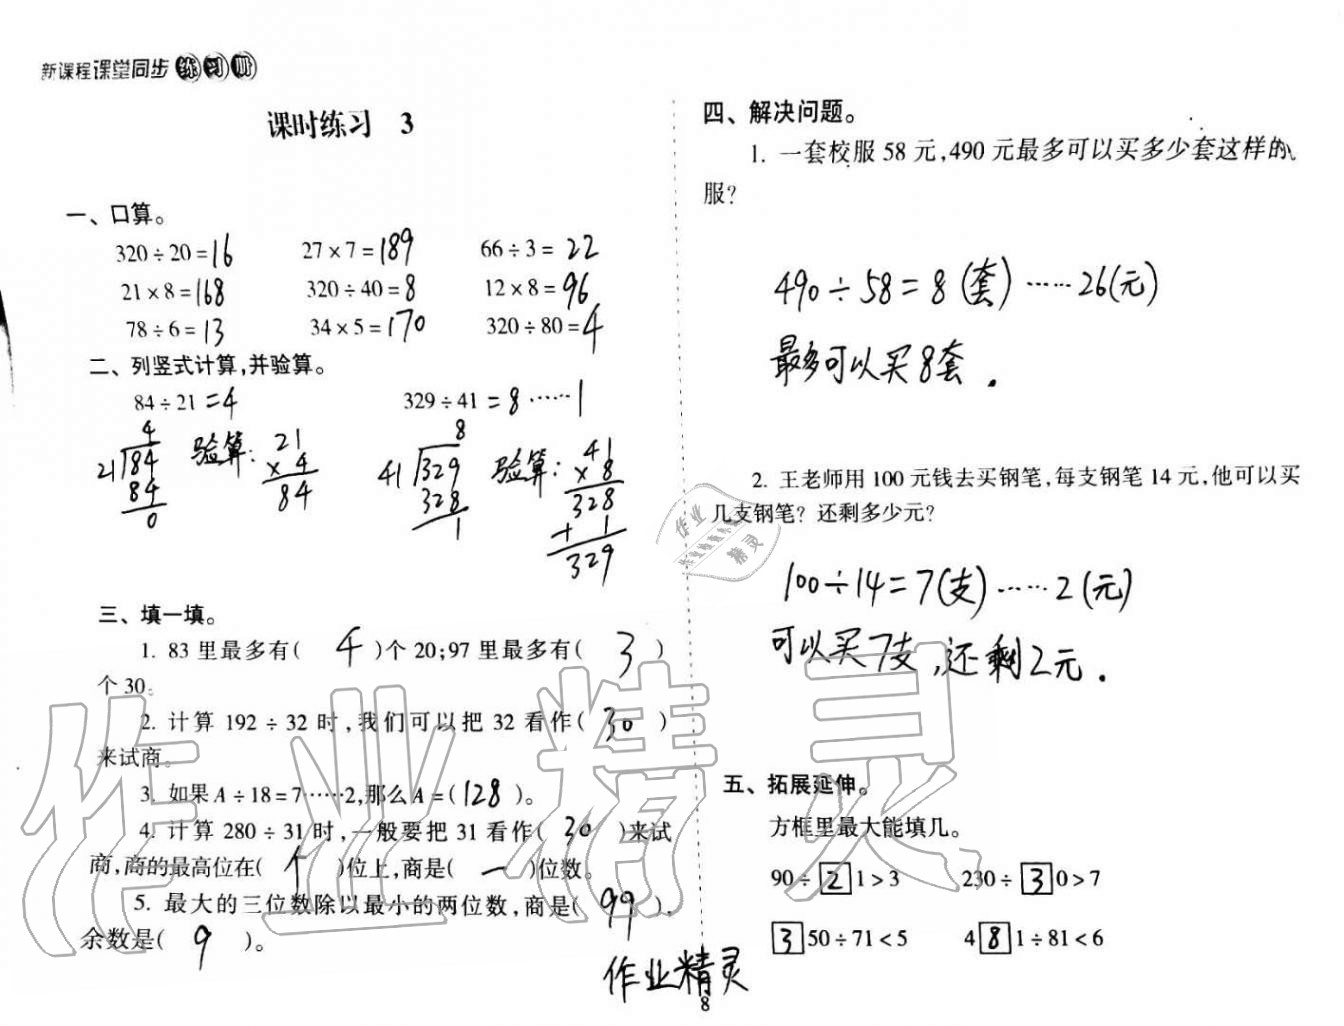 新课程课堂同步练习册
课时练习 3
一、口算。
320÷20=16 27×7=189 66÷3=22
21×8=168 320÷40=8 12×8=96
78÷6=13 34×5=170 320÷80=4
二、列竖式计算,并验算。
84÷21=4 329÷41=8……1
4 验算: 21 8 验算: 41
21 84 × 4 41 329 × 8
84 84 328 328
0 1 + 1
329
三、填一填。
1. 83 里最多有( 4 )个 20;97 里最多有( 3 )
个 30。
2. 计算 192÷32 时,我们可以把 32 看作( 30 )
来试商。
3. 如果 A÷18=7……2,那么 A=(128)。
4. 计算 280÷31 时,一般要把 31 看作( 30 )来试
商,商的最高位在( 个 )位上,商是( 一 )位数。
5. 最大的三位数除以最小的两位数,商是( 99 ),
余数是( 9 )。
四、解决问题。
1. 一套校服 58 元,490 元最多可以买多少套这样的
服?
490÷58=8(套)……26(元)
最多可以买8套.
2. 王老师用 100 元钱去买钢笔,每支钢笔 14 元,他可以买
几支钢笔? 还剩多少元?
100÷14=7(支)……2(元)
可以买7支,还剩2元.
五、拓展延伸。
方框里最大能填几。
90÷21>3 230÷30>7
350÷71<5 481÷81<6
作业精灵
8
作业
精灵
作业精灵